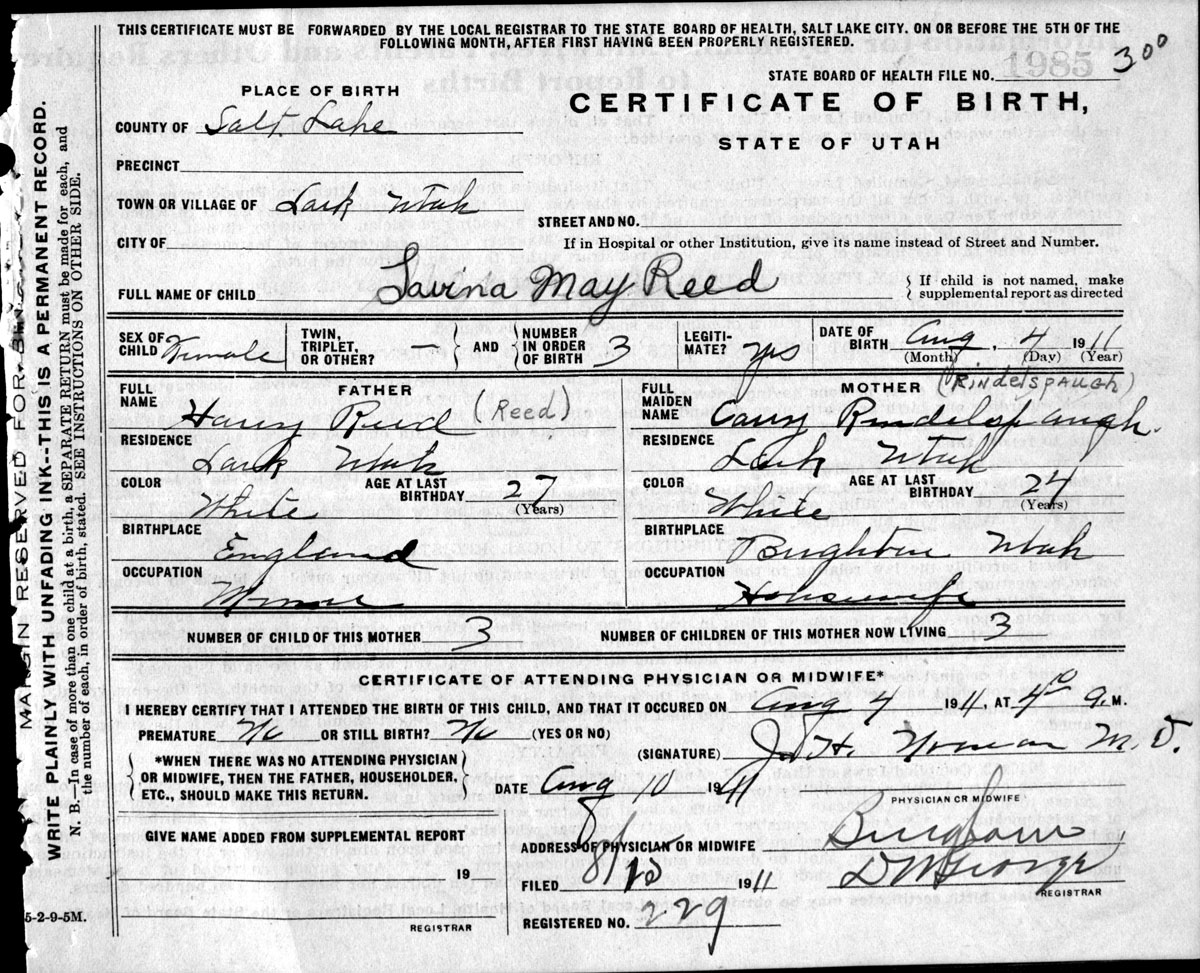 THIS CERTIFICATE MUST BE FORWARDED BY THE LOCAL REGISTRAR TO THE STATE BOARD OF HEALTH, SALT LAKE CITY. ON OR BEFORE THE 5TH OF THE
FOLLOWING MONTH, AFTER FIRST HAVING BEEN PROPERLY REGISTERED.
1985
STATE BOARD OF HEALTH FILE NO. 300
PLACE OF BIRTH
CERTIFICATE OF BIRTH,
STATE OF UTAH
COUNTY OF Salt Lake
PRECINCT
TOWN OR VILLAGE OF Lark Utah
STREET AND NO.
CITY OF
If in Hospital or other Institution, give its name instead of Street and Number.
FULL NAME OF CHILD Lavina May Reed
If child is not named, make
supplemental report as directed
SEX OF CHILD Female
TWIN, TRIPLET, OR OTHER? —
AND NUMBER IN ORDER OF BIRTH 3
LEGITIMATE? yes
DATE OF BIRTH Aug. 4 1911
(Month) (Day) (Year)
FATHER
FULL NAME Harry Reed (Reed)
RESIDENCE Lark Utah
COLOR White
AGE AT LAST BIRTHDAY 27
(Years)
BIRTHPLACE England
OCCUPATION
MOTHER (RINDELSPAUGH)
FULL MAIDEN NAME Carry Rindelspaugh.
RESIDENCE Lark Utah
COLOR White
AGE AT LAST BIRTHDAY 24
(Years)
BIRTHPLACE Brighton Utah
OCCUPATION Housewife
NUMBER OF CHILD OF THIS MOTHER 3
NUMBER OF CHILDREN OF THIS MOTHER NOW LIVING 3
CERTIFICATE OF ATTENDING PHYSICIAN OR MIDWIFE*
I HEREBY CERTIFY THAT I ATTENDED THE BIRTH OF THIS CHILD, AND THAT IT OCCURED ON Aug 4 1911, AT 4 a.M.
PREMATURE No OR STILL BIRTH? No (YES OR NO)
(SIGNATURE) Norman M.D.
*WHEN THERE WAS NO ATTENDING PHYSICIAN
OR MIDWIFE, THEN THE FATHER, HOUSEHOLDER,
ETC., SHOULD MAKE THIS RETURN.
DATE Aug 10 1911
PHYSICIAN OR MIDWIFE
GIVE NAME ADDED FROM SUPPLEMENTAL REPORT
19
REGISTRAR
ADDRESS OF PHYSICIAN OR MIDWIFE Bingham
FILED 8/12 1911 D W George
REGISTRAR
REGISTERED NO. 229
5-2-9-5M.
MARGIN RESERVED FOR
WRITE PLAINLY WITH UNFADING INK--THIS IS A PERMANENT RECORD.
N. B.—In case of more than one child at a birth, a SEPARATE RETURN must be made for each, and
the number of each, in order of birth, stated. SEE INSTRUCTIONS ON OTHER SIDE.